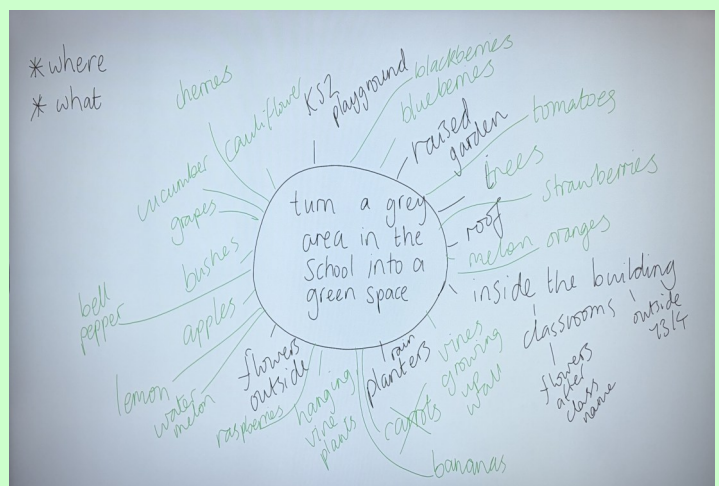 * where
* what
turn a grey
area in the
school into a
green space
cherries
cauliflower
KS2
playground
blackberries
blueberries
raised
garden
tomatoes
trees
strawberries
roof
melon
oranges
inside the building
classrooms
flowers
after
class
name
outside
vines
growing
up
wall
rain
planters
carrots
bananas
hanging
vine
plants
raspberries
flowers
outside
water
melon
lemon
apples
bell
pepper
bushes
grapes
cucumber